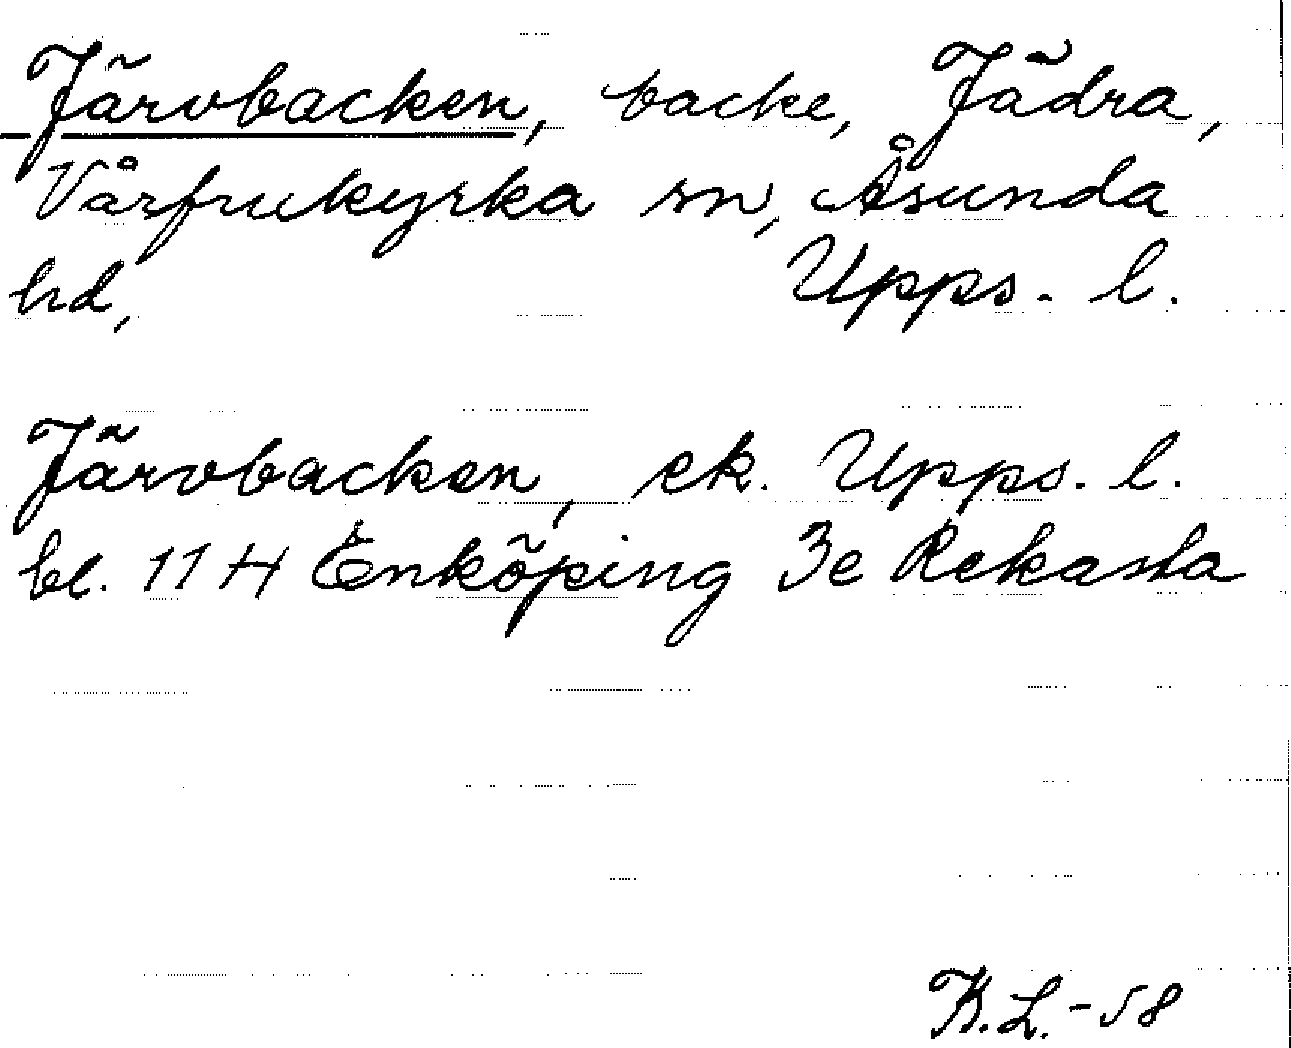 Järvbacken, backe, Jädra,
Vårfrukyrka sn, Åsunda
hd, Upps. l.
Järvbacken, ek. Upps. l.
bl. 11 H Enköping 3e Rekasta
K.L.-58